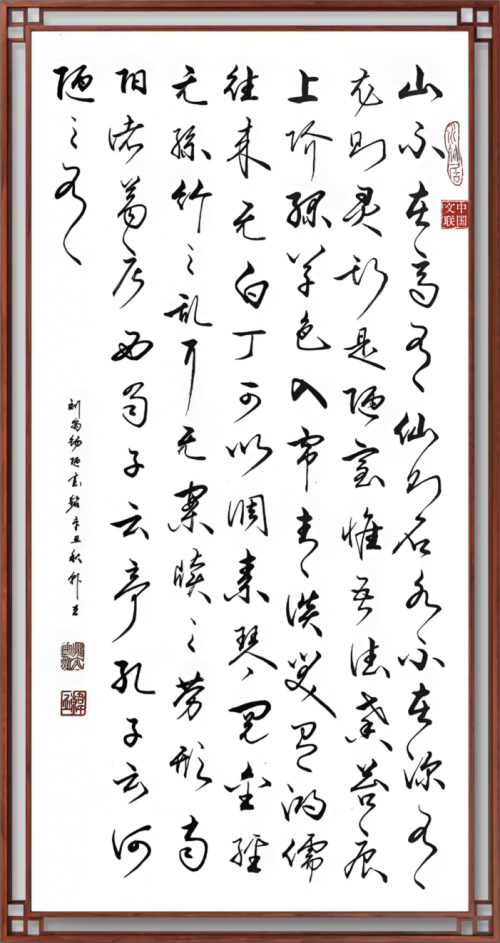 山不在高有仙则名水不在深有
龙则灵斯是陋室惟吾德馨苔痕
上阶绿草色入帘青谈笑有鸿儒
往来无白丁可以调素琴阅金经
无丝竹之乱耳无案牍之劳形南
阳诸葛庐西蜀子云亭孔子云何
陋之有
刘禹锡陋室铭辛丑秋
中国
文联